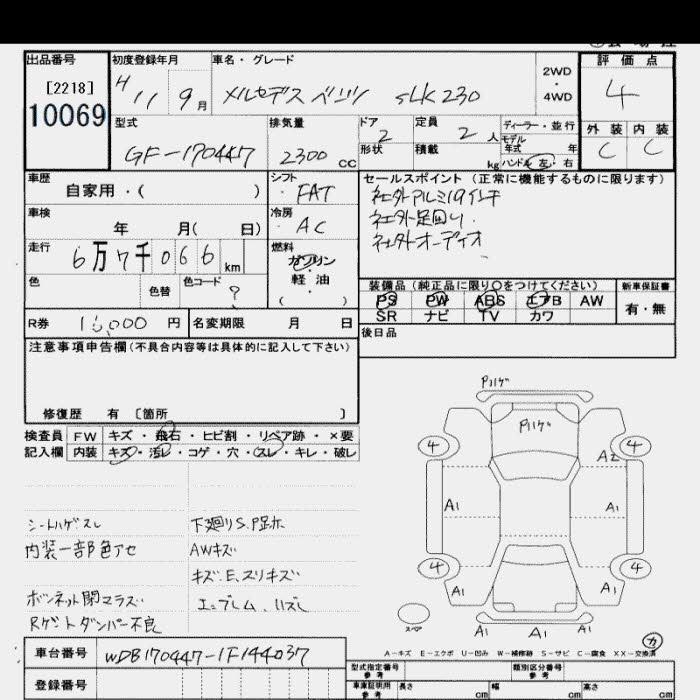 出品番号
[2218]
10069
初度登録年月
H11 9月
車名・グレード
メルセデスベンツ SLK230
2WD・4WD
評価点
4
外装 内装
C C
型式
GF-170447
排気量
2300 CC
ドア 2
形状
定員 2 人
積載 kg
ディーラー・並行
モデル年式 年
ハンドル 左・右
車歴
自家用・( )
シフト
FAT
車検
年 月( 日)
冷房
AC
走行
6万7千066km
燃料
ガソリン
軽・油
( )
色
色替
色コード
?
R券 16,000円
名変期限 月 日
セールスポイント(正常に機能するものに限ります)
社外アルミ19インチ
社外足回り.
社外オーディオ
装備品(純正品に限り○をつけてください)
PS PW ABS エアB AW
SR ナビ TV カワ
新車保証書
有・無
後日品
注意事項申告欄(不具合内容等は具体的に記入して下さい)
修復歴 有 〔箇所 〕
検査員記入欄
FW キズ・飛石・ヒビ割・リペア跡・×要
内装 キズ・汚レ・コゲ・穴・スレ・キレ・破レ
シートハゲスレ
内装一部色アセ
ボンネット閉マラズ
Rゲートダンパー不良
下廻りS.P足ホ
AWキズ
キズ.E.スリキズ
エンブレム.ハズレ
Pハゲ
Pハゲ
4 4
A2
A1 A1
4 4
A1 A1
A1 A1 A1
スペア
カ
A-キズ E-エクボ U-凹み W-補修跡 S-サビ C-腐食 XX-交換済
車台番号 WDB170447-1F144037
登録番号
型式指定番号 参考
類別区分番号 参考
車庫証明用 参考
長さ cm 幅 cm 高さ cm